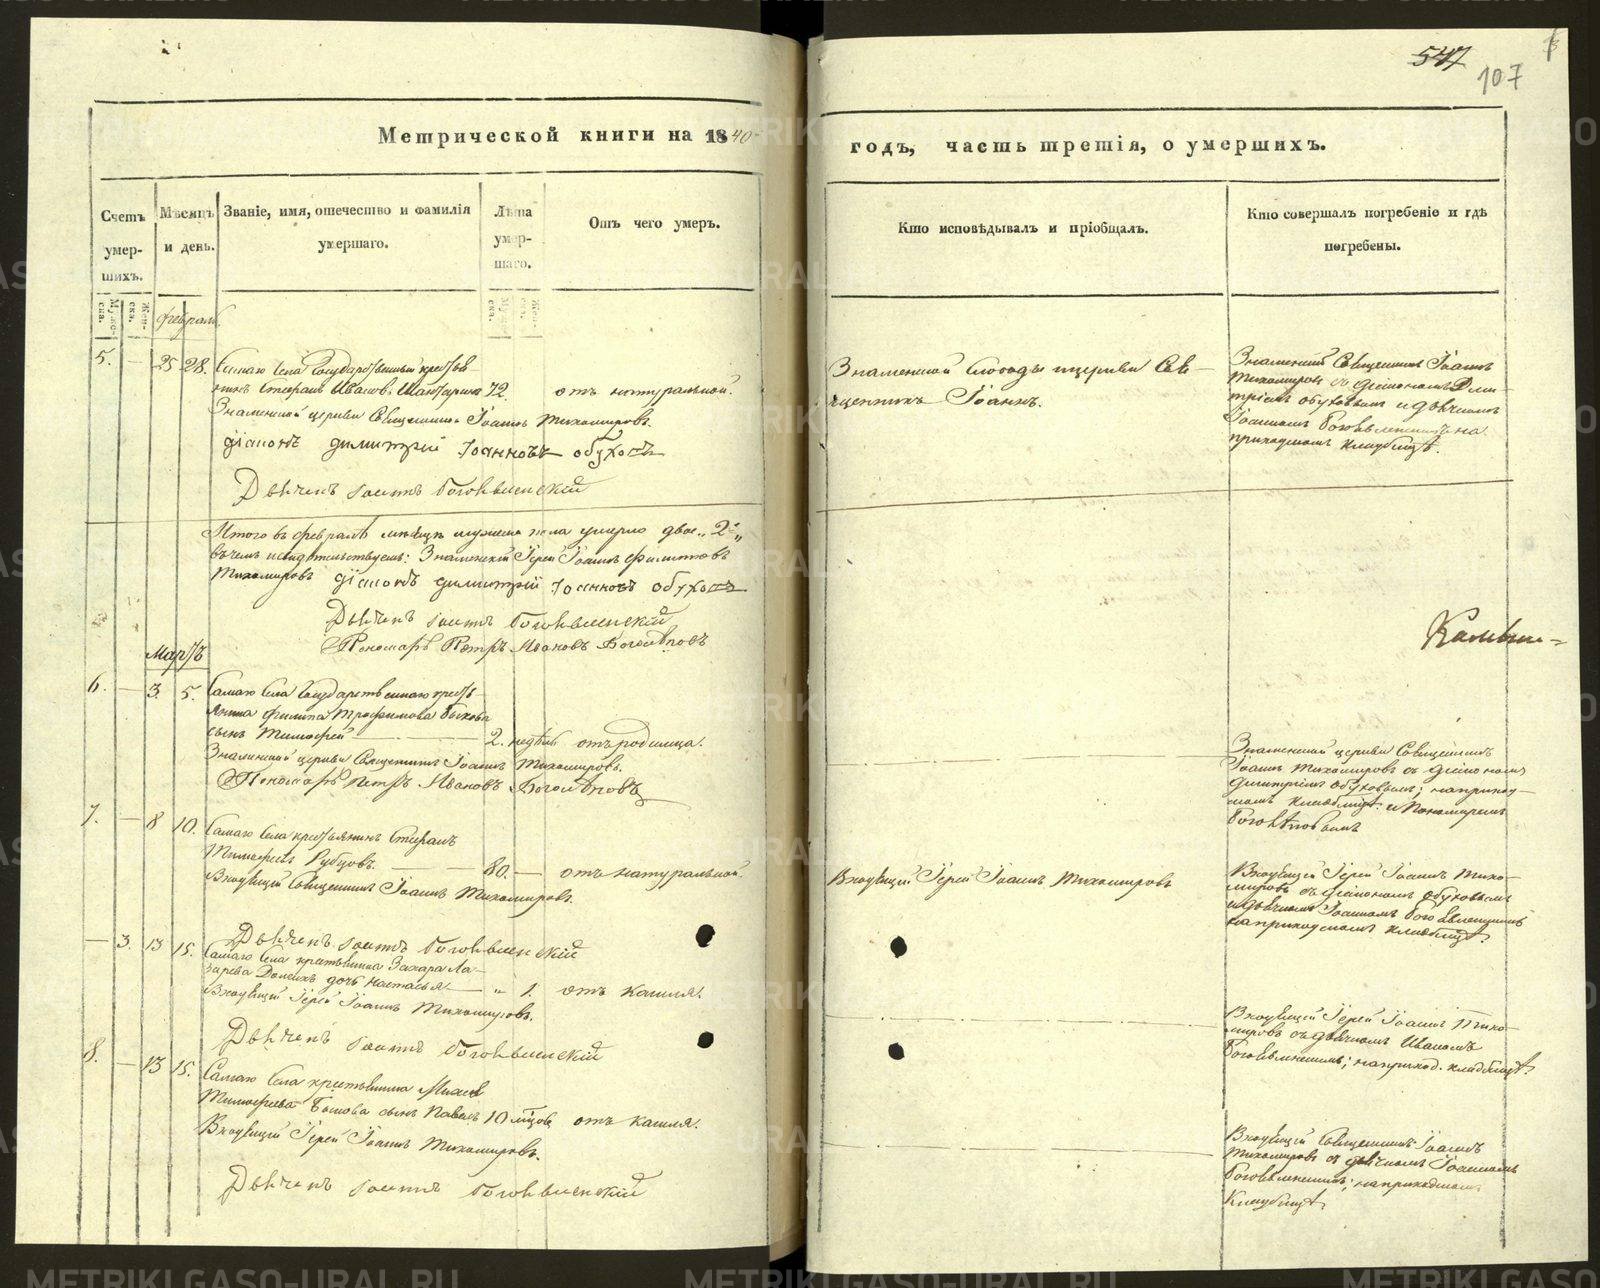 547
107
Метрической книги на 1840
годъ, часть третія, о умершихъ.
Счетъ умер-шихъ.
Мѣсяцъ и день.
Званіе, имя, отечество и фамилія умершаго.
Лѣта умер-шаго.
Отъ чего умеръ.
Кто исповѣдывалъ и пріобщалъ.
Кто совершалъ погребеніе и гдѣ погребены.
Муже-ска.
Жен-ска.
Муже-ска.
Жен-ска.
февраль
5. — 25 28. Самаго Села Государственный кресть-
нинъ Стефанъ Ивановъ 72. отъ натуральной.
Знаменской церкви Священникъ Іоаннъ Тихомировъ.
діаконъ димитрій Іоанновъ обуховъ
Дьячекъ Іоаннъ Богоявленскій
Знаменской слободы церкви Свя-
щенникъ Іоаннъ.
Знаменскій Священникъ Іоаннъ
Тихомировъ съ діакономъ Дми-
тріемъ обуховымъ и дьячкомъ
Іоанномъ Богоявленскимъ на
приходскомъ кладбищѣ.
Итого въ февралѣ мѣсяцѣ мужеска пола умерло двое „2"„
въ чемъ и свидѣтельствуемъ: Знаменскій Іерей Іоаннъ Филиповъ
Тихомировъ діаконъ димитрій Іоанновъ обуховъ
Дьячекъ Іоаннъ Богоявленскій
Пономарь Петръ Ивановъ Боголѣповъ
Мартъ
6. — 3. 5. Самаго Села Государственнаго кресть-
янина Филипа Трофимова Быкова
сынъ Тимофей — 2. недѣль отъ родимца.
Знаменской церкви Священникъ Іоаннъ Тихомировъ.
Пономарь Петръ Ивановъ Боголѣповъ
Знаменской церкви Священникъ
Іоаннъ Тихомировъ съ діакономъ
Димитріемъ обуховымъ; на приход-
скомъ кладбищѣ и Пономаремъ
Боголѣповымъ
7. — 8 10. Самаго Села крестьянинъ Стефанъ
Тимофеевъ Рубцовъ. — 80. — отъ натуральной.
Входящій Священникъ Іоаннъ Тихомировъ.
Дьячекъ Іоаннъ Богоявленскій
Входящій Іерей Іоаннъ Тихомировъ
Входящій Іерей Іоаннъ Тихо-
мировъ съ діакономъ обуховымъ
и дьячкомъ Іоанномъ Богоявленскимъ
на приходскомъ кладбищѣ.
— 3. 13 15. Самаго Села крестьянина Захара Ла-
зарева дочь Настасья — „ 1. отъ кашля.
Входящій Іерей Іоаннъ Тихомировъ.
Дьячекъ Іоаннъ Богоявленскій
Входящій Іерей Іоаннъ Тихо-
мировъ съ дьячкомъ Иваномъ
Богоявленскимъ; на приход. кладбищѣ.
8. — 13 15. Самаго Села крестьянина Михея
Тимофеева сынъ Павелъ 10 мѣсцовъ отъ кашля.
Входящій Іерей Іоаннъ Тихомировъ.
Дьячекъ Іоаннъ Богоявленскій
Входящій Священникъ Іоаннъ
Тихомировъ съ дьячкомъ Іоанномъ
Богоявленскимъ; на приходскомъ
Кладбищѣ.
METRIKI.GASO-URAL.RU